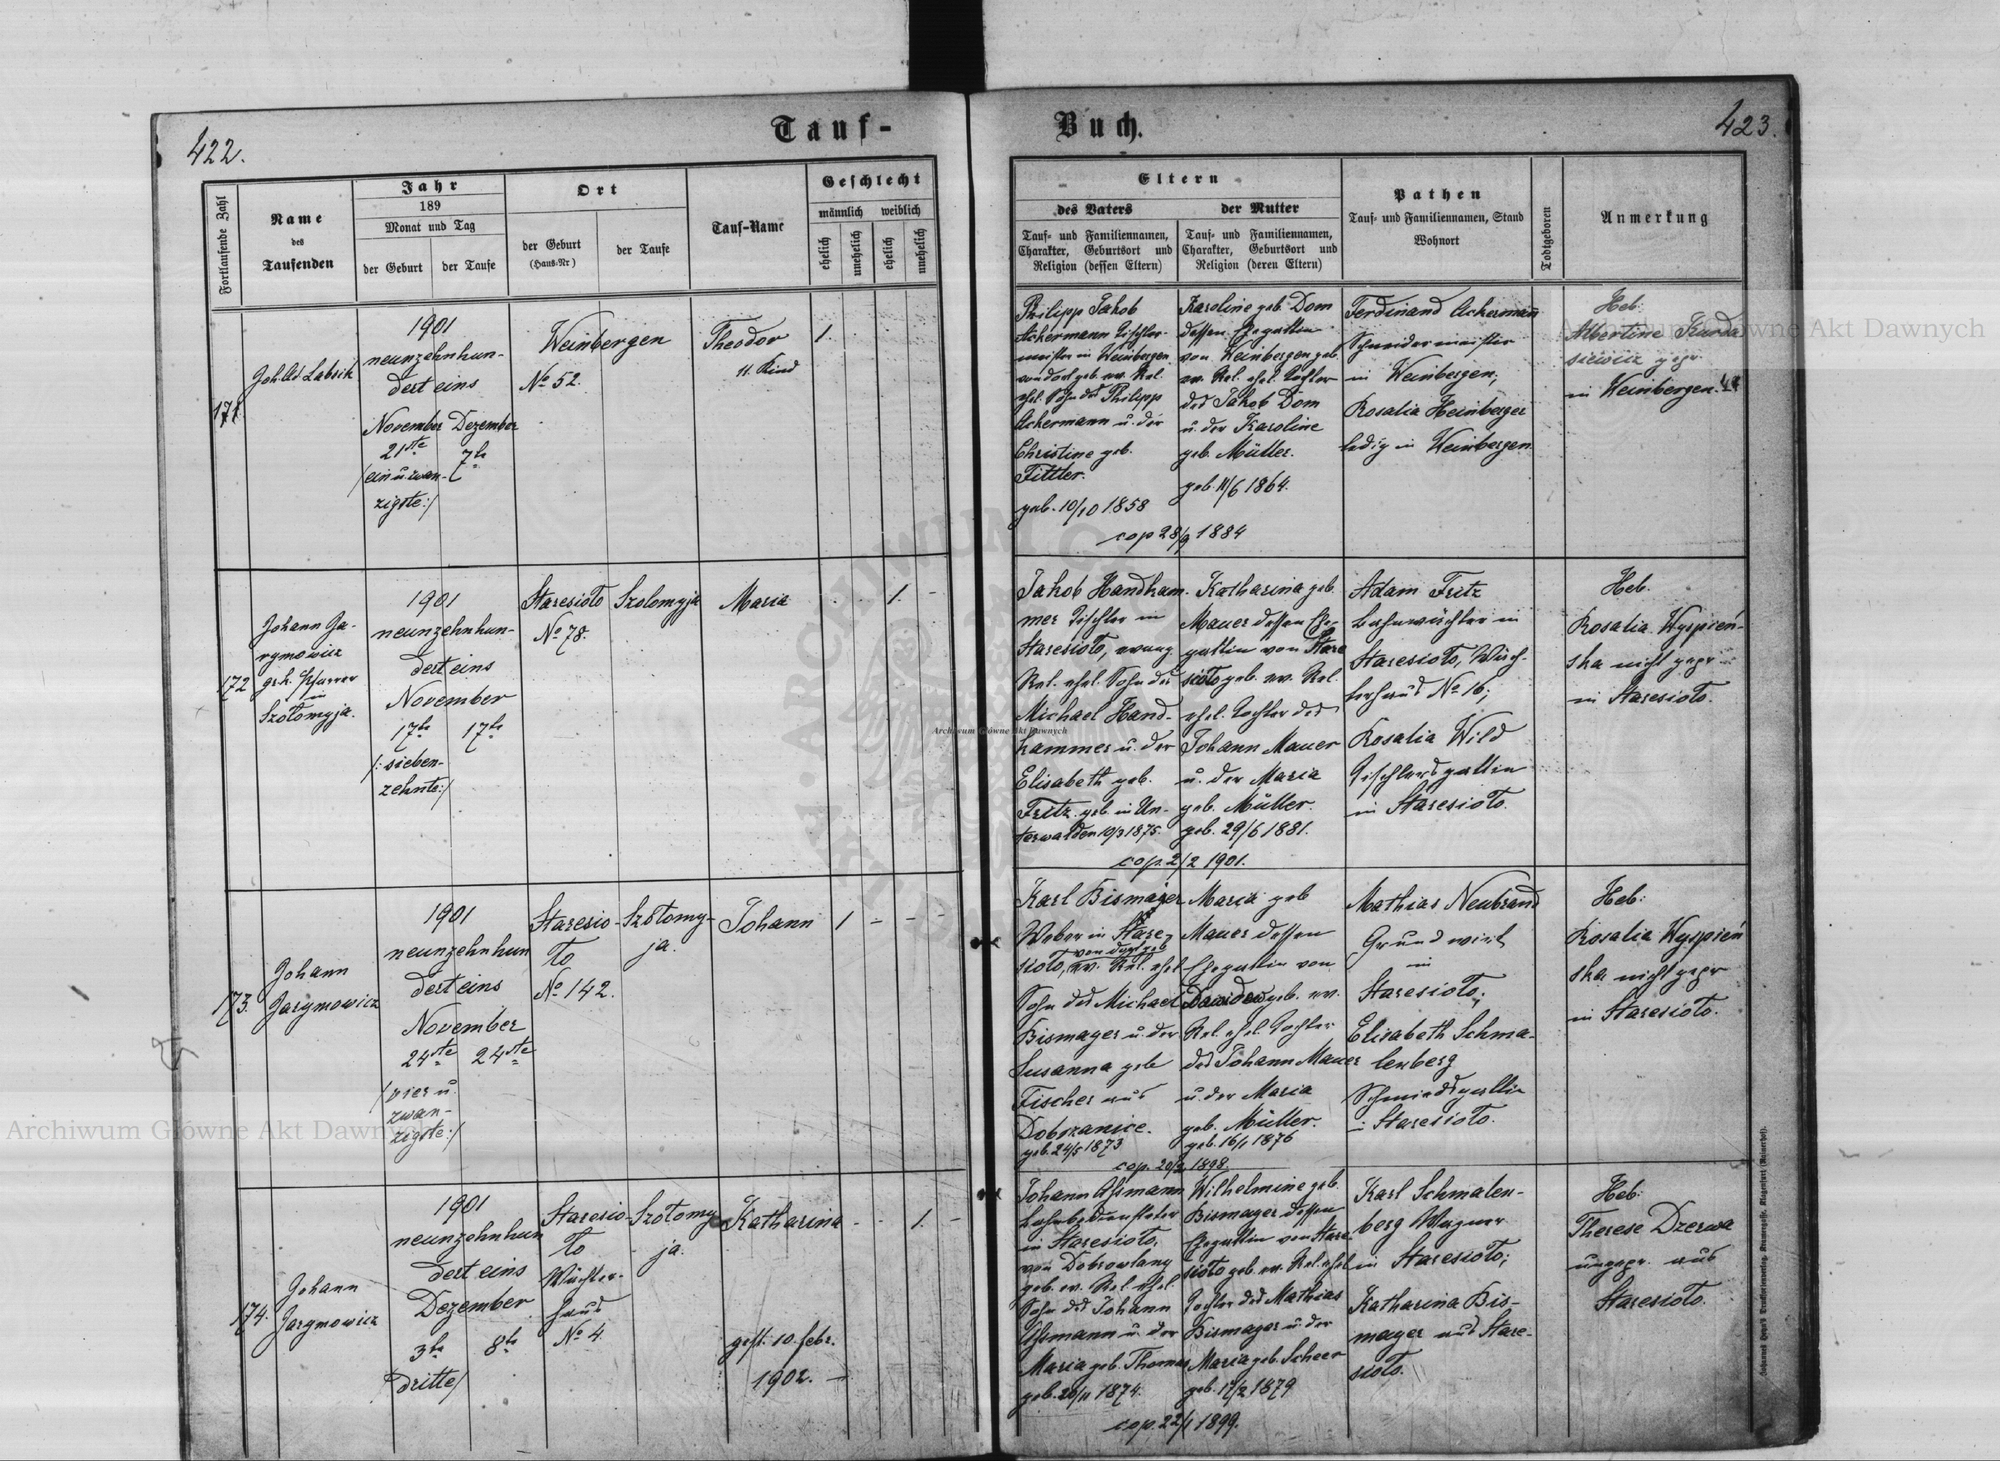 422.
Tauf-
Buch.
423.
Fortlaufende Zahl
Name
des
Taufenden
Jahr
189
Monat und Tag
der Geburt
der Taufe
Ort
der Geburt
(Haus-Nr)
der Taufe
Tauf-Name
Geschlecht
männlich
weiblich
ehelich
unehelich
ehelich
unehelich
Eltern
des Vaters
der Mutter
Tauf- und Familiennamen,
Charakter, Geburtsort und
Religion (dessen Eltern)
Tauf- und Familiennamen,
Charakter, Geburtsort und
Religion (deren Eltern)
Pathen
Tauf- und Familiennamen, Stand
Wohnort
Todtgeboren
Anmerkung
171
Joh. Ad. Labsik
1901
neunzehnhun-
dert eins
November
21ste
/ein u. zwan-
zigste:/
Dezember
7te
Weinbergen
No 52.
Theodor
11. Kind
1.
Philipp Jakob
Ackermann Tischler-
meister in Weinbergen
von dort geb. ev. Rel.
ehel. Sohn des Philipp
Ackermann u. der
Christine geb.
Fittler.
geb. 10/10 1858
Karoline geb. Dom
dessen Ehegattin
von Weinbergen geb.
ev. Rel. ehel. Tochter
des Jakob Dom
u. der Karoline
geb. Müller.
geb. 11/6 1864.
cop 28/9 1884
Ferdinand Ackermann
Schneidermeister
in Weinbergen;
Rosalia Heinberger
ledig in Weinbergen
Heb:
Albertine Kurda
siewicz gepr.
in Weinbergen.
172
Johann Ja-
rymowicz
grk. Pfarrer
in
Szołomyja.
1901
neunzehnhun-
dert eins
November
17te
/:sieben-
zehnte:/
17te
Staresioło
No 78.
Szolomyja
Maria
1.
Jakob Handham-
mer Tischler in
Staresioło, evang
Rel. ehel. Sohn des
Michael Hand-
hammer u. der
Elisabeth geb.
Fritz geb. in Un-
terwalden 10/3 1875.
Katharina geb.
Mauer dessen Ehe-
gattin von Stare
sioło geb. ev. Rel.
ehel. Tochter des
Johann Mauer
u. der Maria
geb. Müller.
geb. 29/6 1881.
cop. 2/2 1901.
Adam Fritz
Bahnwächter in
Staresioło, Wäch-
terhaus No 16;
Rosalia Wild
Tischlersgattin
in Staresioło.
Heb.
Rosalia Wyspień-
ska nicht gepr.
in Staresioło.
173.
Johann
Jarymowicz
1901
neunzehnhun
dert eins
November
24ste
/vier u.
zwan-
zigste:/
24ste
Staresio-
ło
No 142.
Szołomy-
ja.
Johann
1
Karl Bismager
Weber in Stare-
von dort geb
sioło, ev. Rel. ehel
Sohn des Michael
Bismager u. der
Susanna geb
Fischer aus
Dobrzanice.
geb. 24/5 1873
Maria geb
Mauer dessen
Ehegattin von
Dawidow geb. ev.
Rel. ehel. Tochter
des Johann Mauer
u. der Maria
geb. Müller.
geb. 16/1 1876
cop. 20/2 1898.
Mathias Neubrand
Grundwirt
in
Staresioło;
Elisabeth Schma-
lenberg
Schmiedsgattin
in Staresioło.
Heb:
Rosalia Wyspień
ska nicht gepr
in Staresioło.
174.
Johann
Jarymowicz
1901
neunzehnhun
dert eins
Dezember
3te
/dritte/
8te
Staresio-
ło
Wächter-
haus
No 4.
Szołomy
ja.
Katharina
gest. 10. febr.
1902.
1.
Johann Assmann
Bahnbediensteter
in Staresioło,
von Dobrowlany
geb. ev. Rel. ehel.
Sohn des Johann
Assmann u. der
Maria geb. Thomas
geb. 20/11 1874.
Wilhelmine geb.
Bismager dessen
Ehegattin von Stare
sioło geb. ev. Rel. ehel
Tochter des Mathias
Bismager u. der
Maria geb. Scheer
geb. 17/2 1879
cop. 22/1 1899.
Karl Schmalen-
berg Wagner
in Staresioło;
Katharina Bis-
mager aus Stare-
sioło.
Heb:
Therese Dzerwa
ungepr. aus
Staresioło.
Archiwum Główne Akt Dawnych
Archiwum Główne Akt Dawnych
Archiwum Główne Akt Dawnych